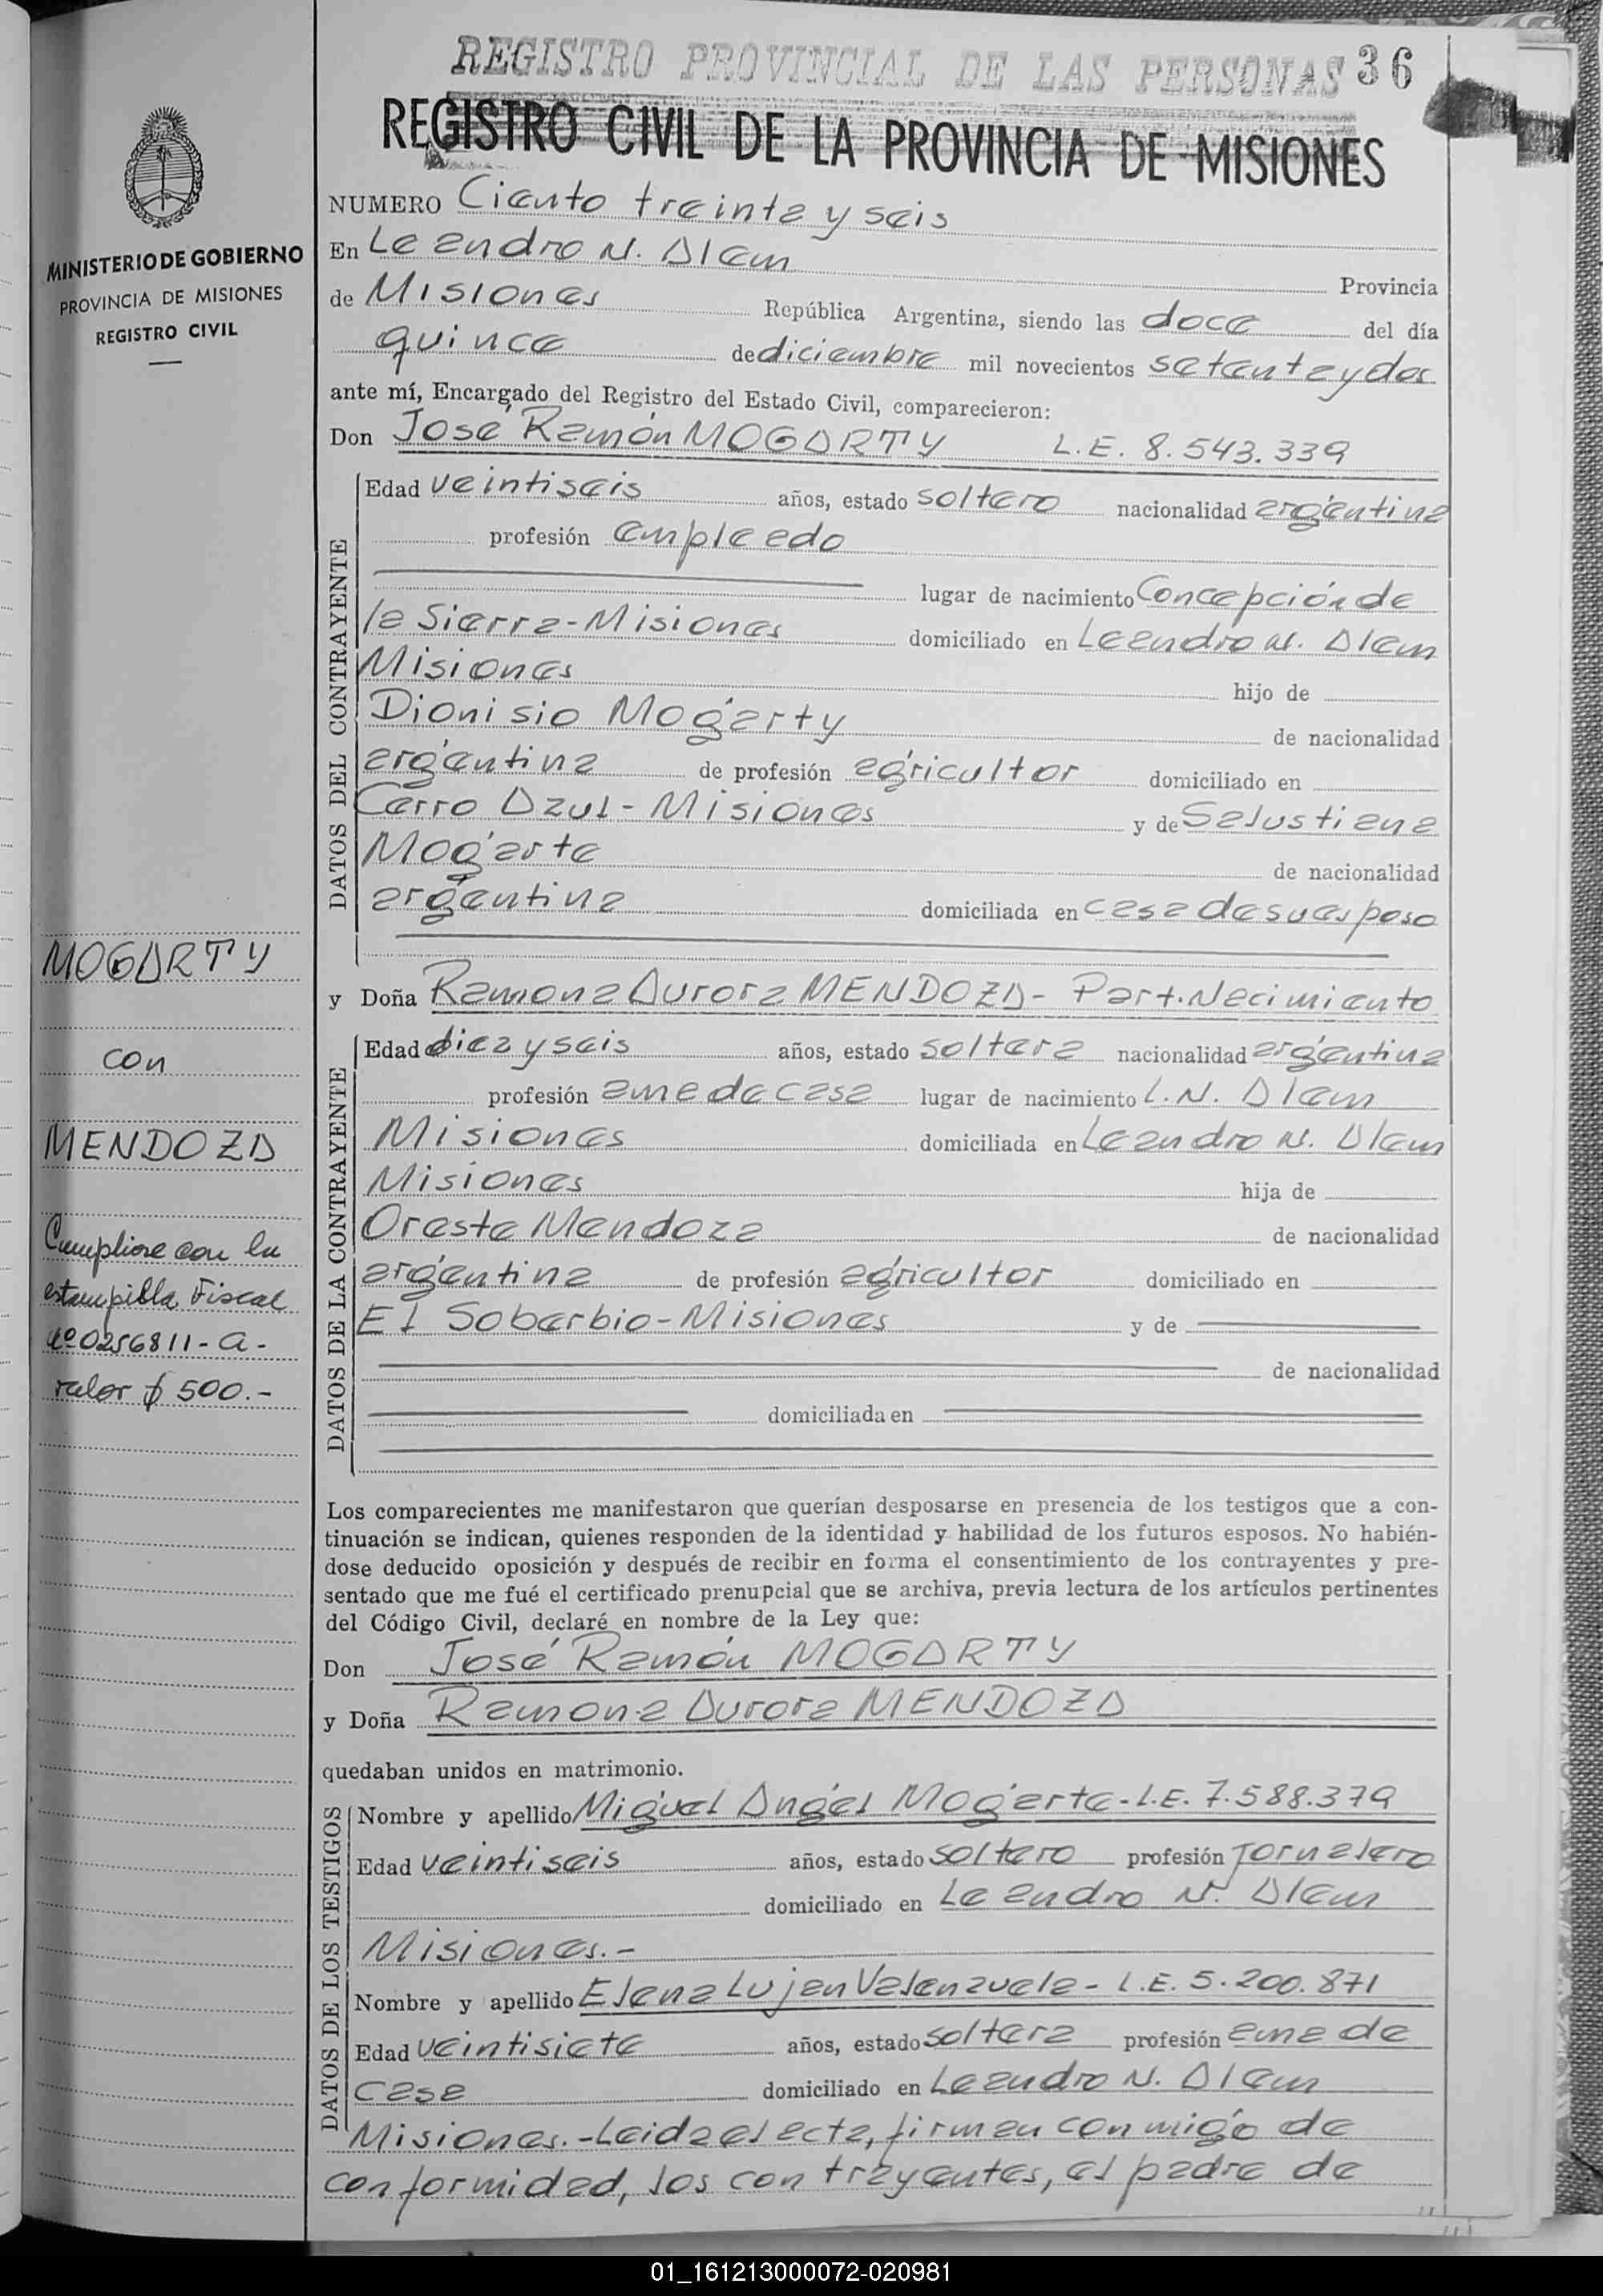 REGISTRO PROVINCIAL DE LAS PERSONAS 36
REGISTRO CIVIL DE LA PROVINCIA DE MISIONES
MINISTERIO DE GOBIERNO
PROVINCIA DE MISIONES
REGISTRO CIVIL
NUMERO Ciento treinta y seis
En Leandro N. Alem Provincia
de Misiones República Argentina, siendo las doce del día
quince de diciembre mil novecientos setenta y dos
ante mí, Encargado del Registro del Estado Civil, comparecieron:
Don José Ramón MOGARTY L.E. 8.543.339
DATOS DEL CONTRAYENTE
Edad veintiseis años, estado soltero nacionalidad argentina
profesión empleado
lugar de nacimiento Concepción de
la Sierra-Misiones domiciliado en Leandro N. Alem
Misiones hijo de
Dionisio Mogarty de nacionalidad
argentina de profesión agricultor domiciliado en
Cerro Azul-Misiones y de Salustiana
Mogarte de nacionalidad
argentina domiciliada en casa de su esposo
MOGARTY
con
MENDOZA
Cumpliose con la
estampilla Fiscal
Nº 0256811-A-
valor $ 500.-
y Doña Ramona Aurora MENDOZA- Part. Nacimiento
DATOS DE LA CONTRAYENTE
Edad diez y seis años, estado soltera nacionalidad argentina
profesión ama de casa lugar de nacimiento L.N. Alem
Misiones domiciliada en Leandro N. Alem
Misiones hija de
Oreste Mendoza de nacionalidad
argentina de profesión agricultor domiciliado en
El Soberbio-Misiones y de
de nacionalidad
domiciliada en
Los comparecientes me manifestaron que querían desposarse en presencia de los testigos que a con-
tinuación se indican, quienes responden de la identidad y habilidad de los futuros esposos. No habién-
dose deducido oposición y después de recibir en forma el consentimiento de los contrayentes y pre-
sentado que me fué el certificado prenupcial que se archiva, previa lectura de los artículos pertinentes
del Código Civil, declaré en nombre de la Ley que:
Don José Ramón MOGARTY
y Doña Ramona Aurora MENDOZA
quedaban unidos en matrimonio.
DATOS DE LOS TESTIGOS
Nombre y apellido Miguel Angel Mogarte-L.E. 7.588.379
Edad veintiseis años, estado soltero profesión jornalero
domiciliado en Leandro N. Alem
Misiones.-
Nombre y apellido Elena Lujan Valenzuela- L.E. 5.200.871
Edad veintisiete años, estado soltera profesión ama de
casa domiciliado en Leandro N. Alem
Misiones.-Leida el acta, firman conmigo de
conformidad, los contrayentes, el padre de
01_161213000072-020981